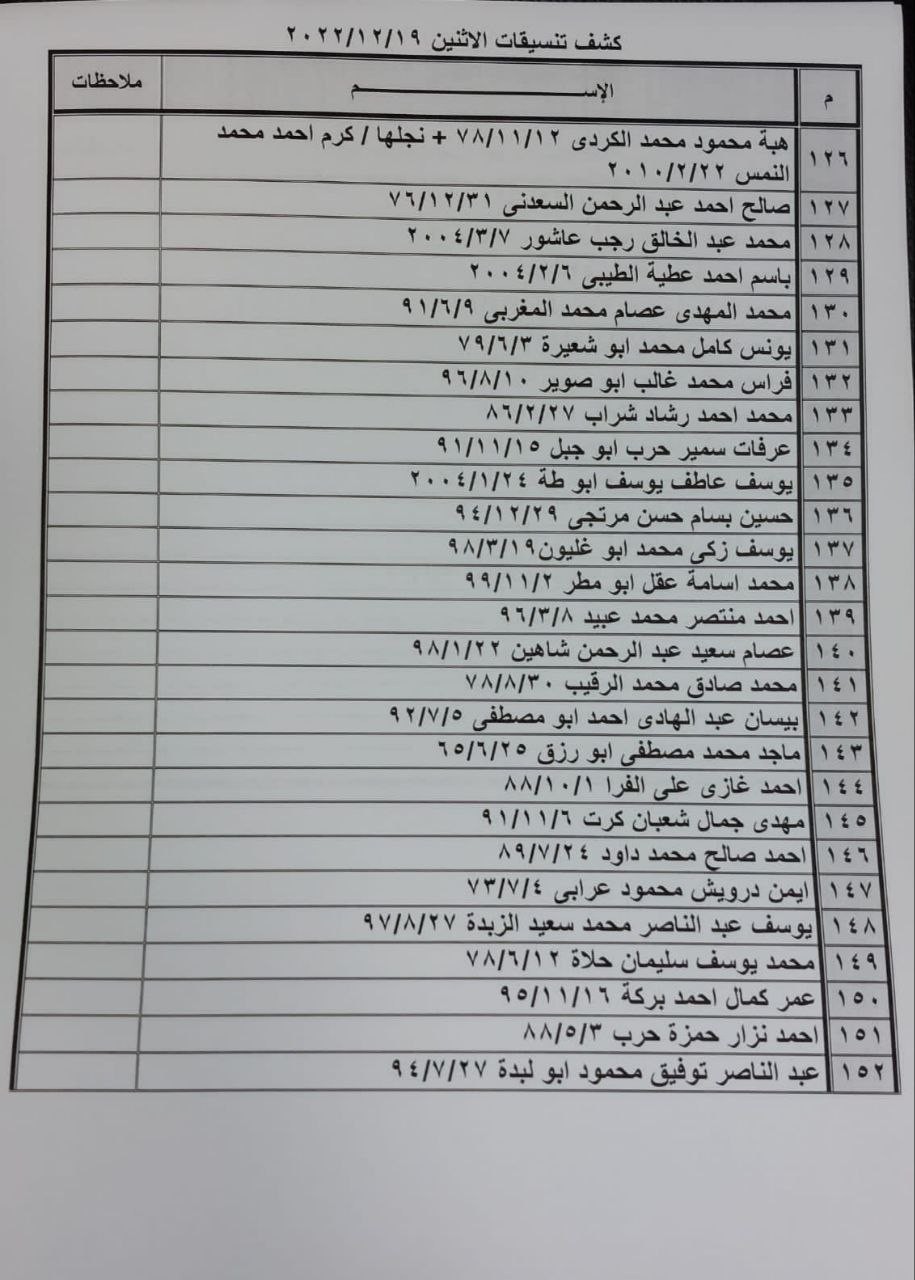 كشف تنسيقات الاثنين ٢٠٢٢/١٢/١٩
م الإســـــــــــــــــــــم ملاحظات
١٢٦ هبة محمود محمد الكردى ٧٨/١١/١٢ + نجلها / كرم احمد محمد
النمس ٢٠١٠/٢/٢٢
١٢٧ صالح احمد عبد الرحمن السعدنى ٧٦/١٢/٣١
١٢٨ محمد عبد الخالق رجب عاشور ٢٠٠٤/٣/٧
١٢٩ باسم احمد عطية الطيبى ٢٠٠٤/٢/٦
١٣٠ محمد المهدى عصام محمد المغربى ٩١/٦/٩
١٣١ يونس كامل محمد ابو شعيرة ٧٩/٦/٣
١٣٢ فراس محمد غالب ابو صوير ٩٦/٨/١٠
١٣٣ محمد احمد رشاد شراب ٨٦/٢/٢٧
١٣٤ عرفات سمير حرب ابو جبل ٩١/١١/١٥
١٣٥ يوسف عاطف يوسف ابو طة ٢٠٠٤/١/٢٤
١٣٦ حسين بسام حسن مرتجى ٩٤/١٢/٢٩
١٣٧ يوسف زكى محمد ابو غليون٩٨/٣/١٩
١٣٨ محمد اسامة عقل ابو مطر ٩٩/١١/٢
١٣٩ احمد منتصر محمد عبيد ٩٦/٣/٨
١٤٠ عصام سعيد عبد الرحمن شاهين ٩٨/١/٢٢
١٤١ محمد صادق محمد الرقيب ٧٨/٨/٣٠
١٤٢ بيسان عبد الهادى احمد ابو مصطفى ٩٢/٧/٥
١٤٣ ماجد محمد مصطفى ابو رزق ٦٥/٦/٢٥
١٤٤ احمد غازى على الفرا ٨٨/١٠/١
١٤٥ مهدى جمال شعبان كرت ٩١/١١/٦
١٤٦ احمد صالح محمد داود ٨٩/٧/٢٤
١٤٧ ايمن درويش محمود عرابى ٧٣/٧/٤
١٤٨ يوسف عبد الناصر محمد سعيد الزبدة ٩٧/٨/٢٧
١٤٩ محمد يوسف سليمان حلاة ٧٨/٦/١٢
١٥٠ عمر كمال احمد بركة ٩٥/١١/١٦
١٥١ احمد نزار حمزة حرب ٨٨/٥/٣
١٥٢ عبد الناصر توفيق محمود ابو لبدة ٩٤/٧/٢٧